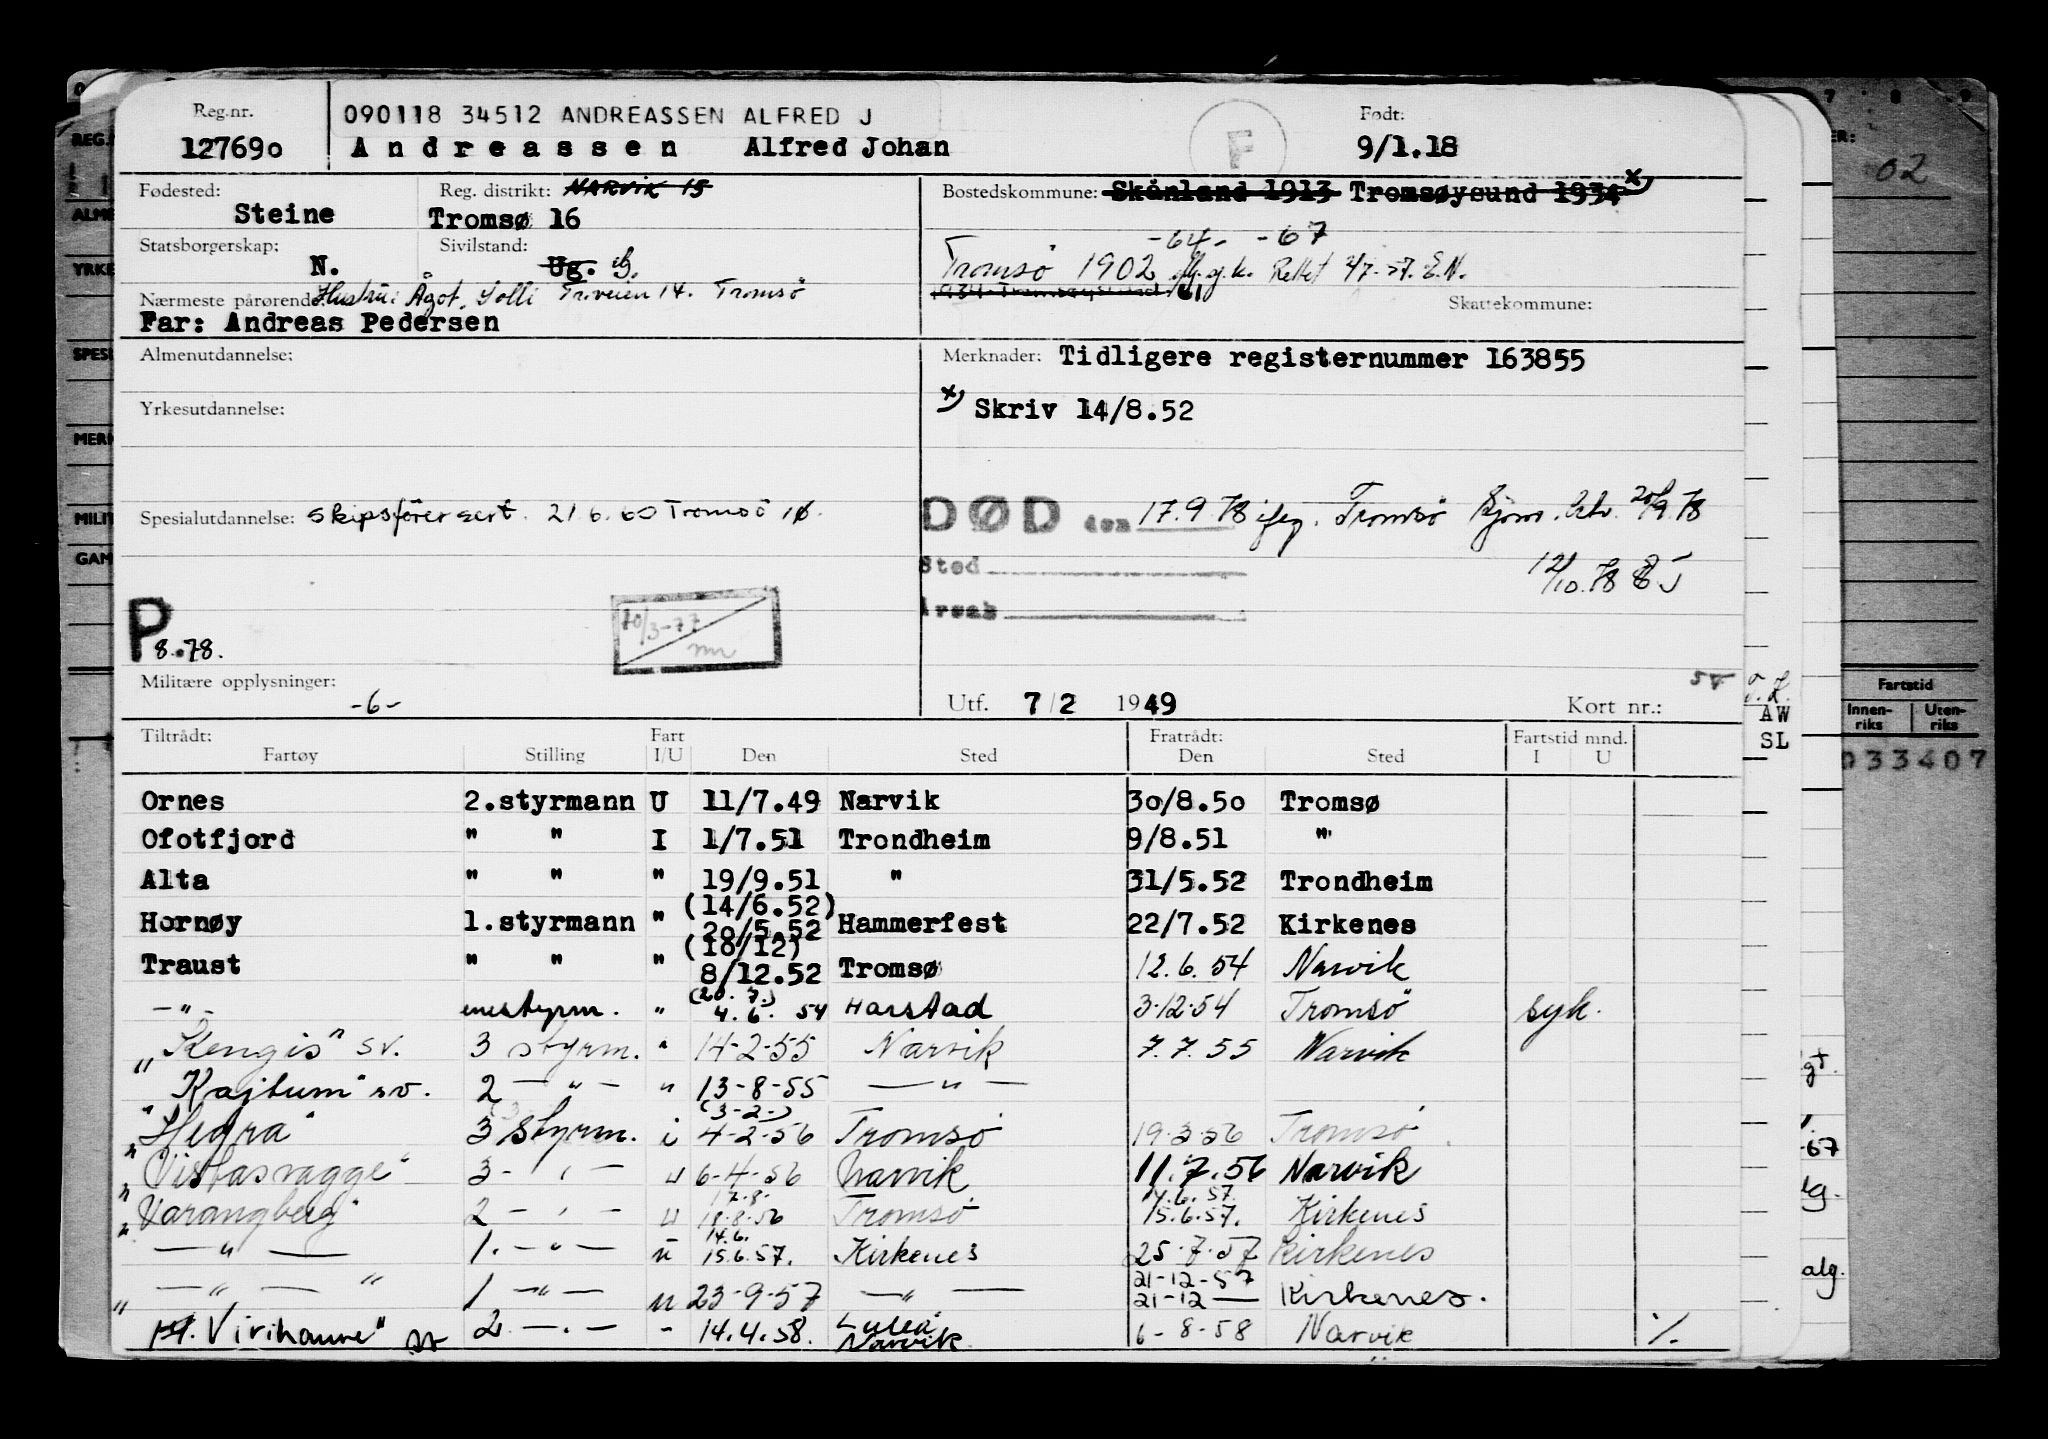 Reg.nr. 12769o
090118 34512 ANDREASSEN ALFRED J
Andreassen Alfred Johan
F
Født: 9/1.18
02
Fødested: Steine
Reg. distrikt: NARVIK 15
Tromsø 16
Bostedskommune: Skånland 1913 Tromsøysund 1934 x)
-64- -67
Tromsø 1902 Rettet 2/7-57. E.N.
61
Statsborgerskap: N.
Sivilstand: Ug. G.
Nærmeste pårørende: Hustru: Ågot, Solli Triveien 14. Tromsø
Far: Andreas Pedersen
Skattekommune:
Almenutdannelse:
Merknader: Tidligere registernummer 163855
x) Skriv 14/8.52
Yrkesutdannelse:
Spesialutdannelse: skipsförersert. 21.6.60 Tromsö 16.
DØD den 17.9.78 ifg. Tromsö 20/9.78
12/10.78
Sted
Årsak
P 8.78.
Militære opplysninger: -6-
Utf. 7/2 1949
Kort nr.:
AW
SL
Fartstid
Innenriks Utenriks
033407
Tiltrådt: Fart Fratrådt: Fartstid mnd.
Fartøy Stilling I/U Den Sted Den Sted I U
Ornes 2.styrmann U 11/7.49 Narvik 3o/8.5o Tromsø
Ofotfjord " " I 1/7.51 Trondheim 9/8.51 "
Alta " " " 19/9.51 " 31/5.52 Trondheim
Hornøy 1.styrmann " (14/6.52) 2o/5.52 Hammerfest 22/7.52 Kirkenes
Traust " " " (10/12) 8/12.52 Tromsø 12.6.54 Narvik
-"- enestyrm. " (20.7.) 4.6. 54 Harstad 3-12-54 Tromsö syk.
"Kengis" sv. 3 styrm. " 14-2-55 Narvik 7.7.55 Narvik
Kajtum" sv. 2 -"- " 13-8-55 -"-
"Hegra" 3 styrm. i (3-2-) 4-2-56 Tromsö 19-3-56 Tromsö
"Vistasvagge" 3 -"- u 6-4-56 Narvik 11.7.56 Narvik
"Varangberg" 2 -"- u 17.8. 18.8.56 Tromsö 14.6.57. 15.6.57. Kirkenes
-"- 1. -"- u 14.6. 15.6.57. Kirkenes 25-7-57 Kirkenes
-"- 1 -"- u 23-9-57 -"- 21-12-57 21-12 Kirkenes.
"Virihaure" sv 2 -"- " 14.4.58. Luleå Narvik 6-8-58 Narvik ./.